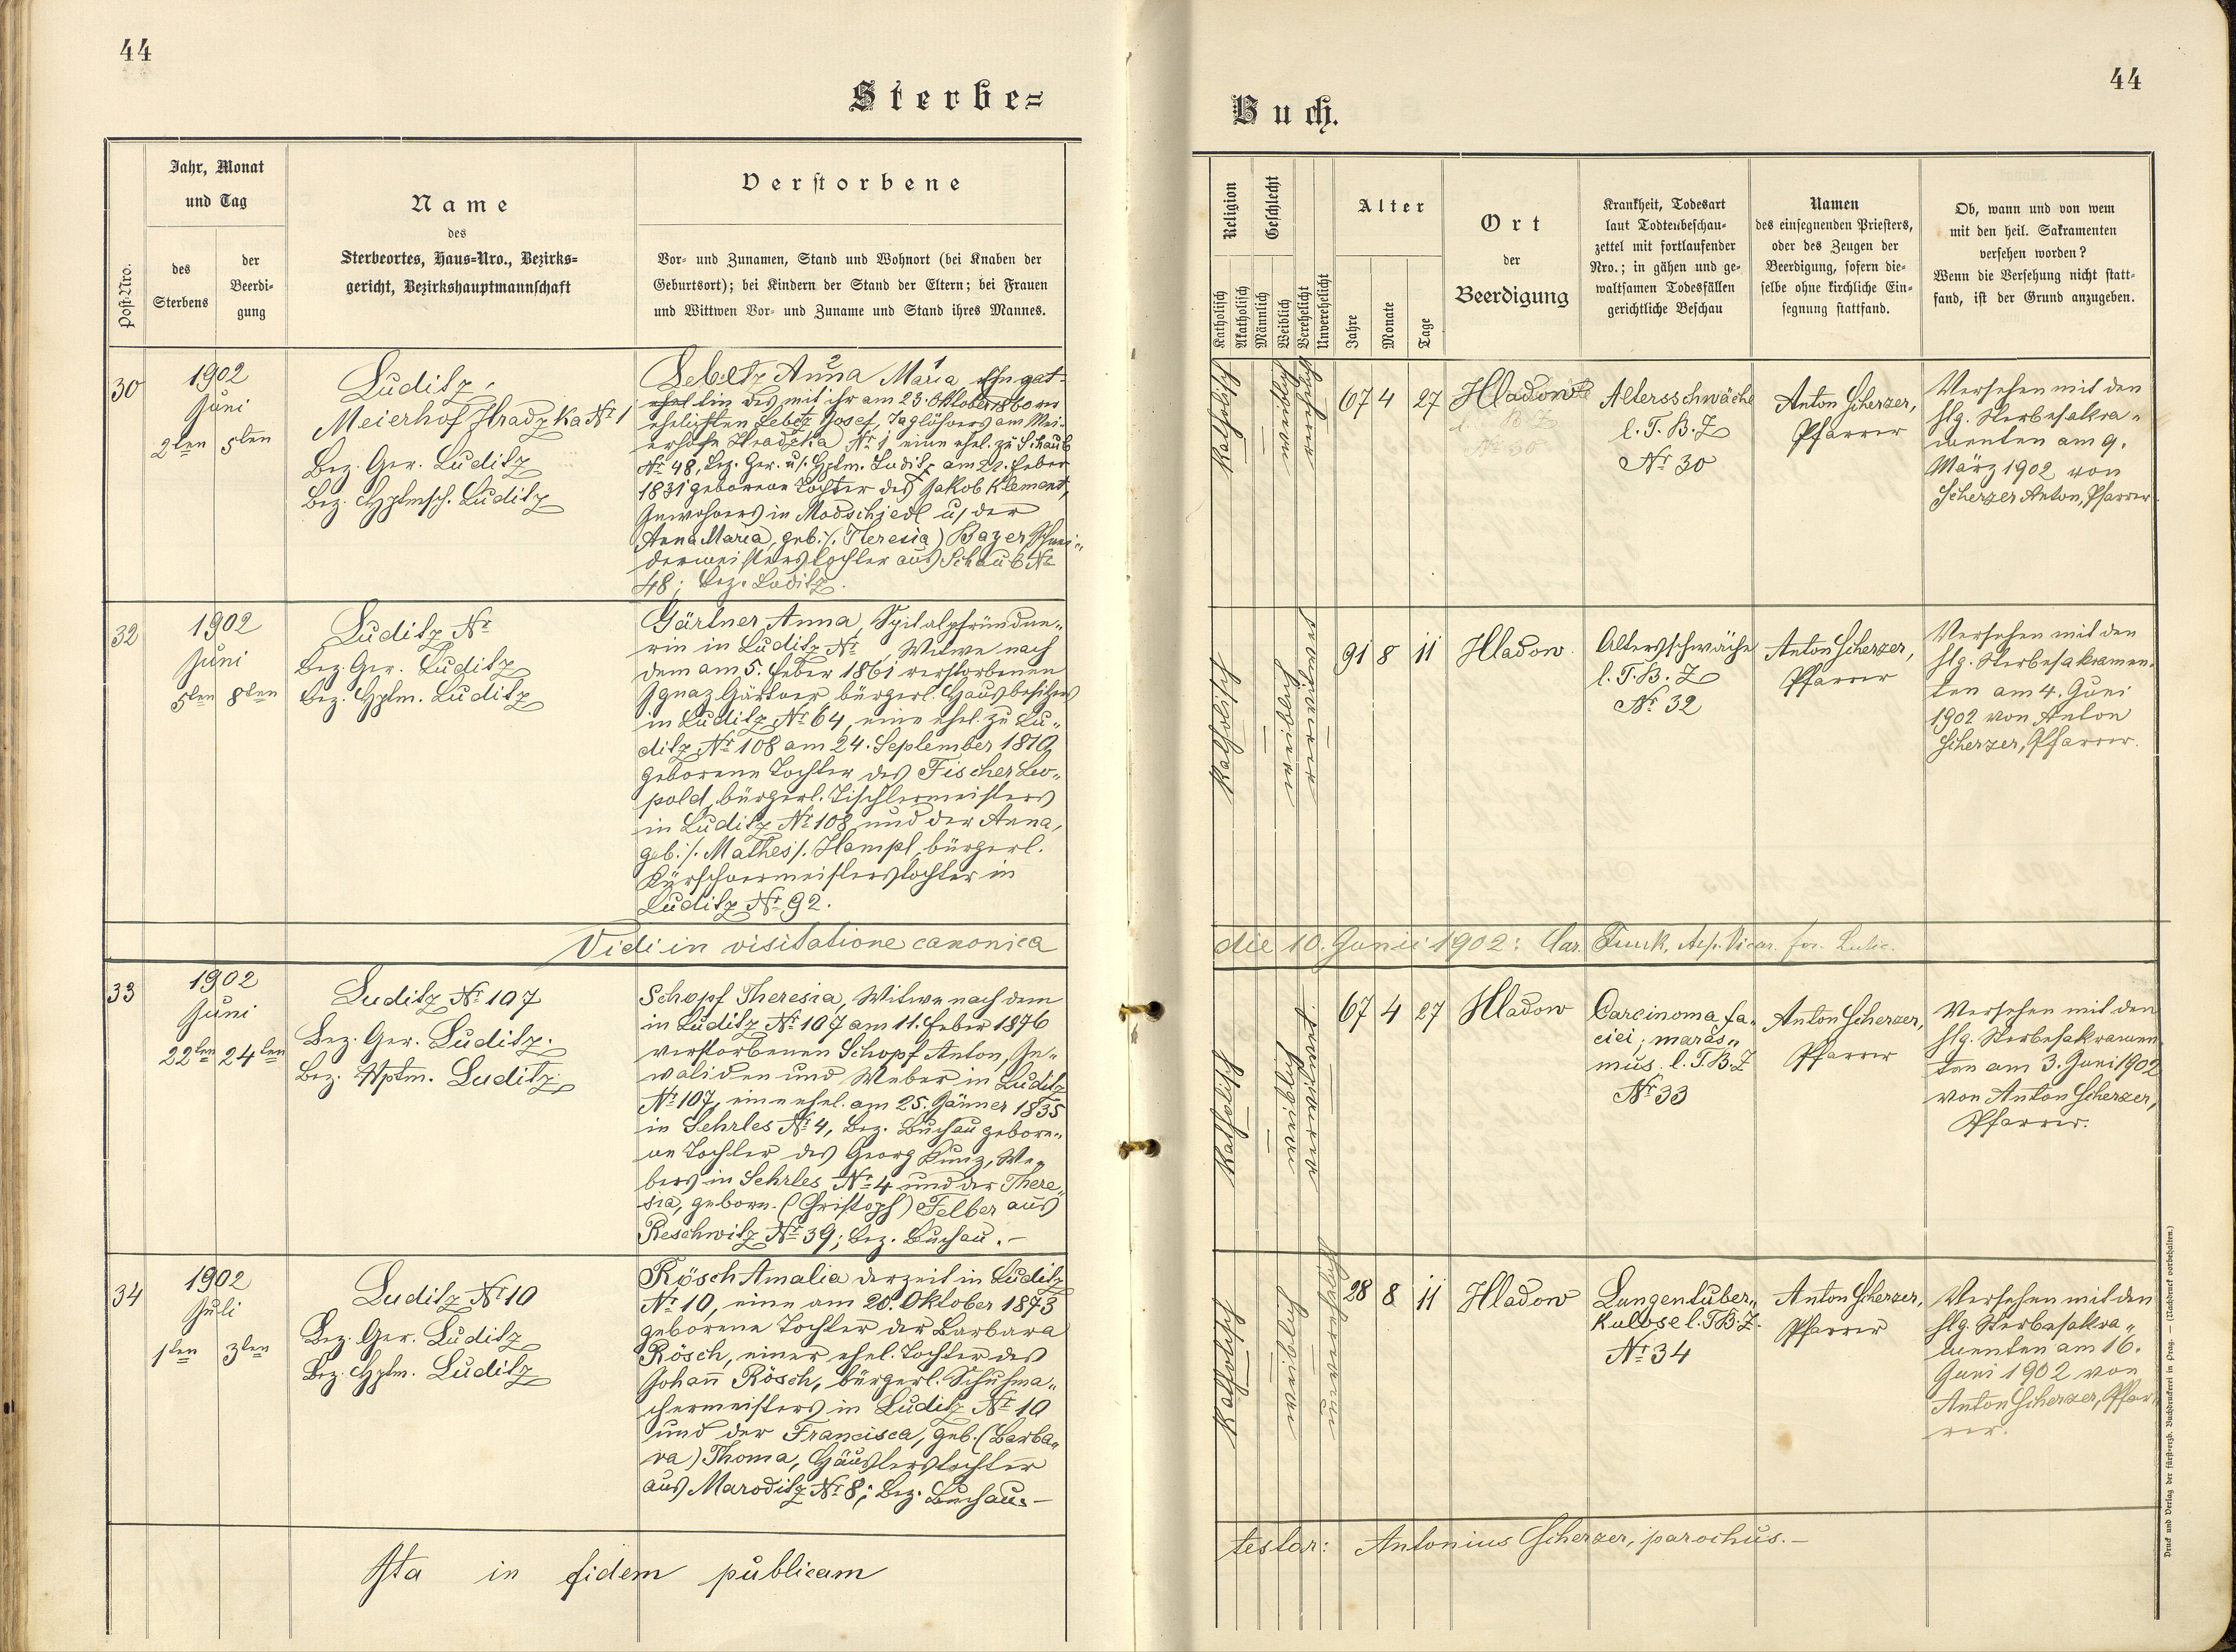 44
Sterbe=
Jahr, Monat
und Tag
Post-Nro.
des
Sterbens
der
Beerdi-
gung
Name
des
Sterbeortes, Haus-Nro., Bezirks=
gericht, Bezirkshauptmannschaft
Verstorbene
Vor- und Zunamen, Stand und Wohnort (bei Knaben der
Geburtsort); bei Kindern der Stand der Eltern; bei Frauen
und Wittwen Vor- und Zuname und Stand ihres Mannes.
30
1902
Juni
2ten 5ten
Luditz,
Meierhof Hradzka Nr 1
Bez. Ger. Luditz
Bez. Hptmsch. Luditz
Lebetz Anna 2 Maria 1, Ehegat-
tin des mit ihr am 23. Oktober 1860 ver
ehelichten Lebetz Josef, Taglöhners am Mei-
erhofe Hradzka Nr 1 eine ehel. zu Schaub
Nr 48, Bez. Ger. u/. Hptm. Luditz am 22. Feber
1831 geborene Tochter des Jakob Klement,
Inwohners in Modschiedl u/ der
Anna Maria, geb. /. Theresia) Bazer Schnei-
dermeisterstochter aus Schaub Nr
48; Bez. Luditz.
32
1902
Juni
5ten 8ten
Luditz Nr
Bez. Ger. Luditz
Bez. Hptm. Luditz
Gärtner Anna, Spitalpfründne-
rin in Luditz Nr , Witwe nach
dem am 5. Feber 1861 verstorbenen
Ignaz Gärtner bürgerl. Hausbesitzers
in Luditz Nr 64, eine ehel. zu Lu-
ditz Nr 108 am 24. September 1810
geborene Tochter des Fischer Leo-
pold, bürgerl. Tischlermeisters
in Luditz Nr 108 und der Anna,
geb. /. Mathes/. Hampl, bürgerl.
Kürschnermeisterstochter in
Luditz Nr 92.
Vidi in visitatione canonica
33
1902
Juni
22ten 24ten
Luditz Nr 107
Bez. Ger. Luditz.
Bez. Hptm. Luditz
Schopf Theresia, Witwe nach dem
in Luditz Nr 107 am 11. Feber 1876
verstorbenen Schopf Anton, In-
validen und Weber in Luditz
Nr 107, eine ehel. am 25. Jänner 1835
in Sehrles Nr 4, Bez. Buchau gebore-
ne Tochter des Georg Kunz, We-
bers in Sehrles Nr 4 und der There-
sia, geborn. (Christoph) Felber aus
Reschwitz Nr 39; Bez. Buchau. –
34
1902
Juli
1ten 3ten
Luditz Nr 10
Bez. Ger. Luditz
Bez. Hptm. Luditz
Rösch Amalia derzeit in Luditz
Nr 10, eine am 20. Oktober 1873
geborene Tochter der Barbara
Rösch, einer ehel. Tochter des
Johann Rösch, bürgerl. Schuhma-
chermeisters in Luditz Nr 10
und der Francisca, geb. (Barba-
ra) Thoma, Häuslerstochter
aus Maroditz Nr 8; Bez. Buchau. –
Ita in fidem publicam
44
Buch.
Religion
Katholisch
Akatholisch
Geschlecht
Männlich
Weiblich
Verehelicht
Unverehelicht
Alter
Jahre
Monate
Tage
Ort
der
Beerdigung
Krankheit, Todesart
laut Todtenbeschau-
zettel mit fortlaufender
Nro.; in gähen und ge-
waltsamen Todesfällen
gerichtliche Beschau
Namen
des einsegnenden Priesters,
oder des Zeugen der
Beerdigung, sofern die-
selbe ohne kirchliche Ein-
segnung stattfand.
Ob, wann und von wem
mit den heil. Sakramenten
versehen worden?
Wenn die Versehung nicht statt-
fand, ist der Grund anzugeben.
katholisch
weiblich
verehelicht
67 4 27
Hladow
Altersschwäche
l. T. B. Z
Nr 30
Anton Scherzer,
Pfarrer
Versehen mit den
hlg. Sterbesakra-
menten am 9.
März 1902 von
Scherzer Anton, Pfarrer
katholisch
weiblich
verwitwet
91 8 11
Hladow.
Altersschwäche
l. T. B. Z
Nr 32
Anton Scherzer,
Pfarrer
Versehen mit den
hlg. Sterbesakramen-
ten am 4. Juni
1902 von Anton
Scherzer, Pfarrer.
die 10. Junii 1902: Car. Funk,
katholisch
weiblich
verwitwet
67 4 27
Hladow
Carcinoma fa-
ciei; maras-
mus. l. T. B. Z
Nr 33
Anton Scherzer,
Pfarrer
Versehen mit den
hlg. Sterbesakramen
ten am 3. Juni 1902
von Anton Scherzer,
Pfarrer.
katholisch
weiblich
unverehelicht
28 8 11
Hladow
Lungentuber-
kulose l. T. B. Z.
Nr 34
Anton Scherzer,
Pfarrer
Versehen mit den
hlg. Sterbesakra-
menten am 16.
Juni 1902 von
Anton Scherzer, Pfar-
rer.
testor: Antonius Scherzer, parochus. –
Druck und Verlag der fürst-erzb. Buchdruckerei in Prag. — (Nachdruck vorbehalten.)